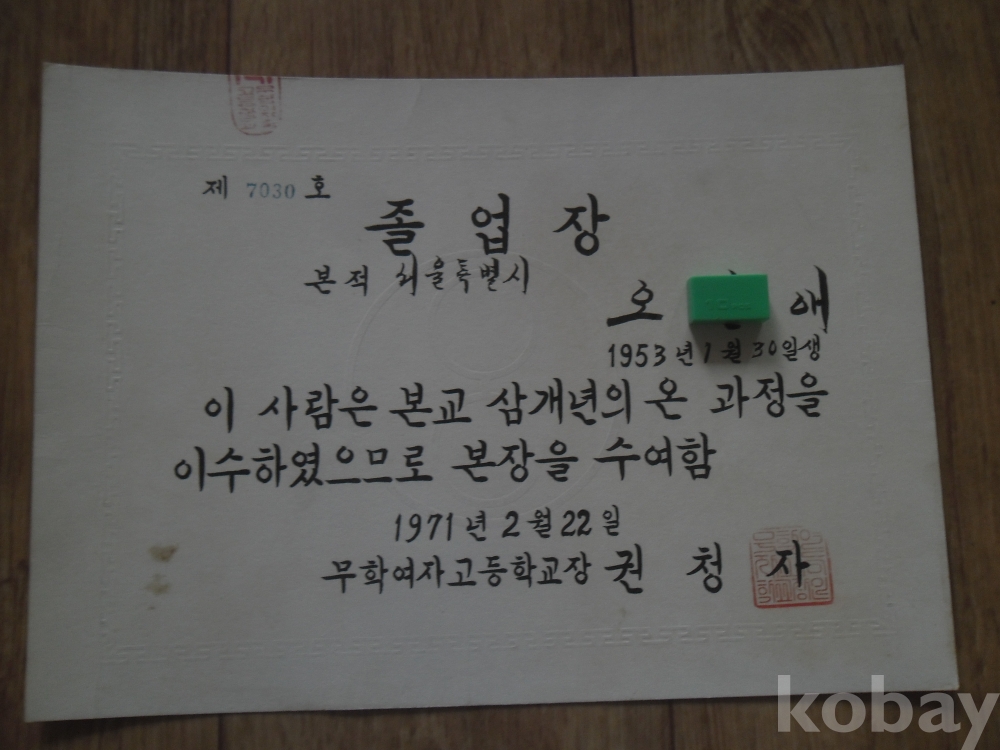 제 7030 호
졸업장
본적 서울특별시
오 애
1953년 1월 30일생
이 사람은 본교 삼개년의 온 과정을
이수하였으므로 본장을 수여함
1971년 2월 22일
무학여자고등학교장 권청자
kobay